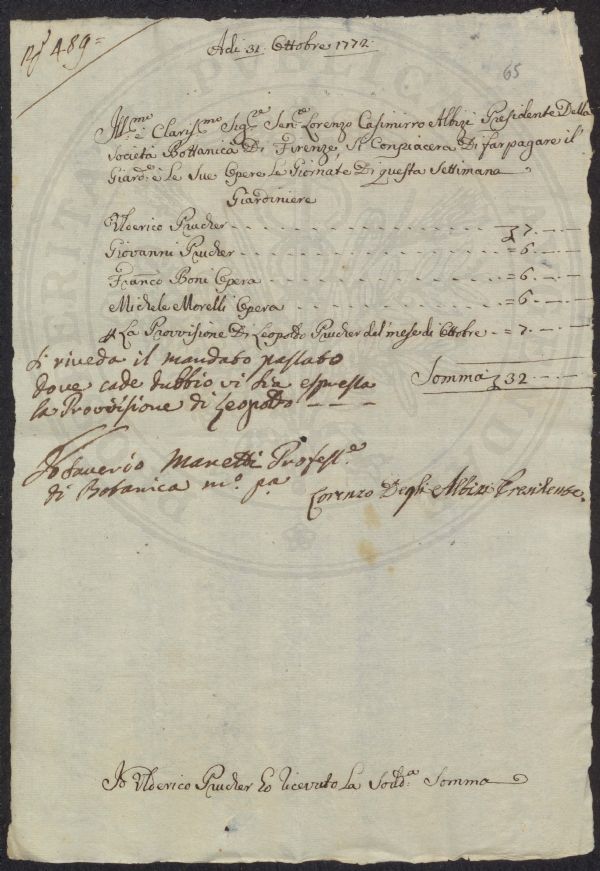 N.° 489=
Adi 31: Ottobre 1772:
65
Ill.mo e Claris.mo Sig.re Sen.re Lorenzo Casimirro Albizi Presidente Della
Società Bottanica Di Firenze, Si Conpiacera Di far pagare il
Giard.e e Le Sue Opere Le Giornate Di questa Settimana
Giardiniere
Ulderico Prucker - - - - - - - - - - - - - 7. - -
Giovanni Prucker - - - - - - - - - - - - = 6. - -
Fran.co Boni Opera - - - - - - - - - - - = 6. - -
Michele Morelli Opera - - - - - - - - - = 6 - -
La Provvisione Di Leopoldo Prucker del' mese di Ottobre - - = 7. - -
Si riveda il mandato passato
dove cade dubbio vi sia espressa
la Provvisione di Leopoldo - - -
Somma 32 - -
Io Saverio Manetti Profess.e
di Botanica m.o p.a
Lorenzo Degli Albizi Presidente.
Io Ulderico Prucker Ho ricevuto La Sod.a Somma